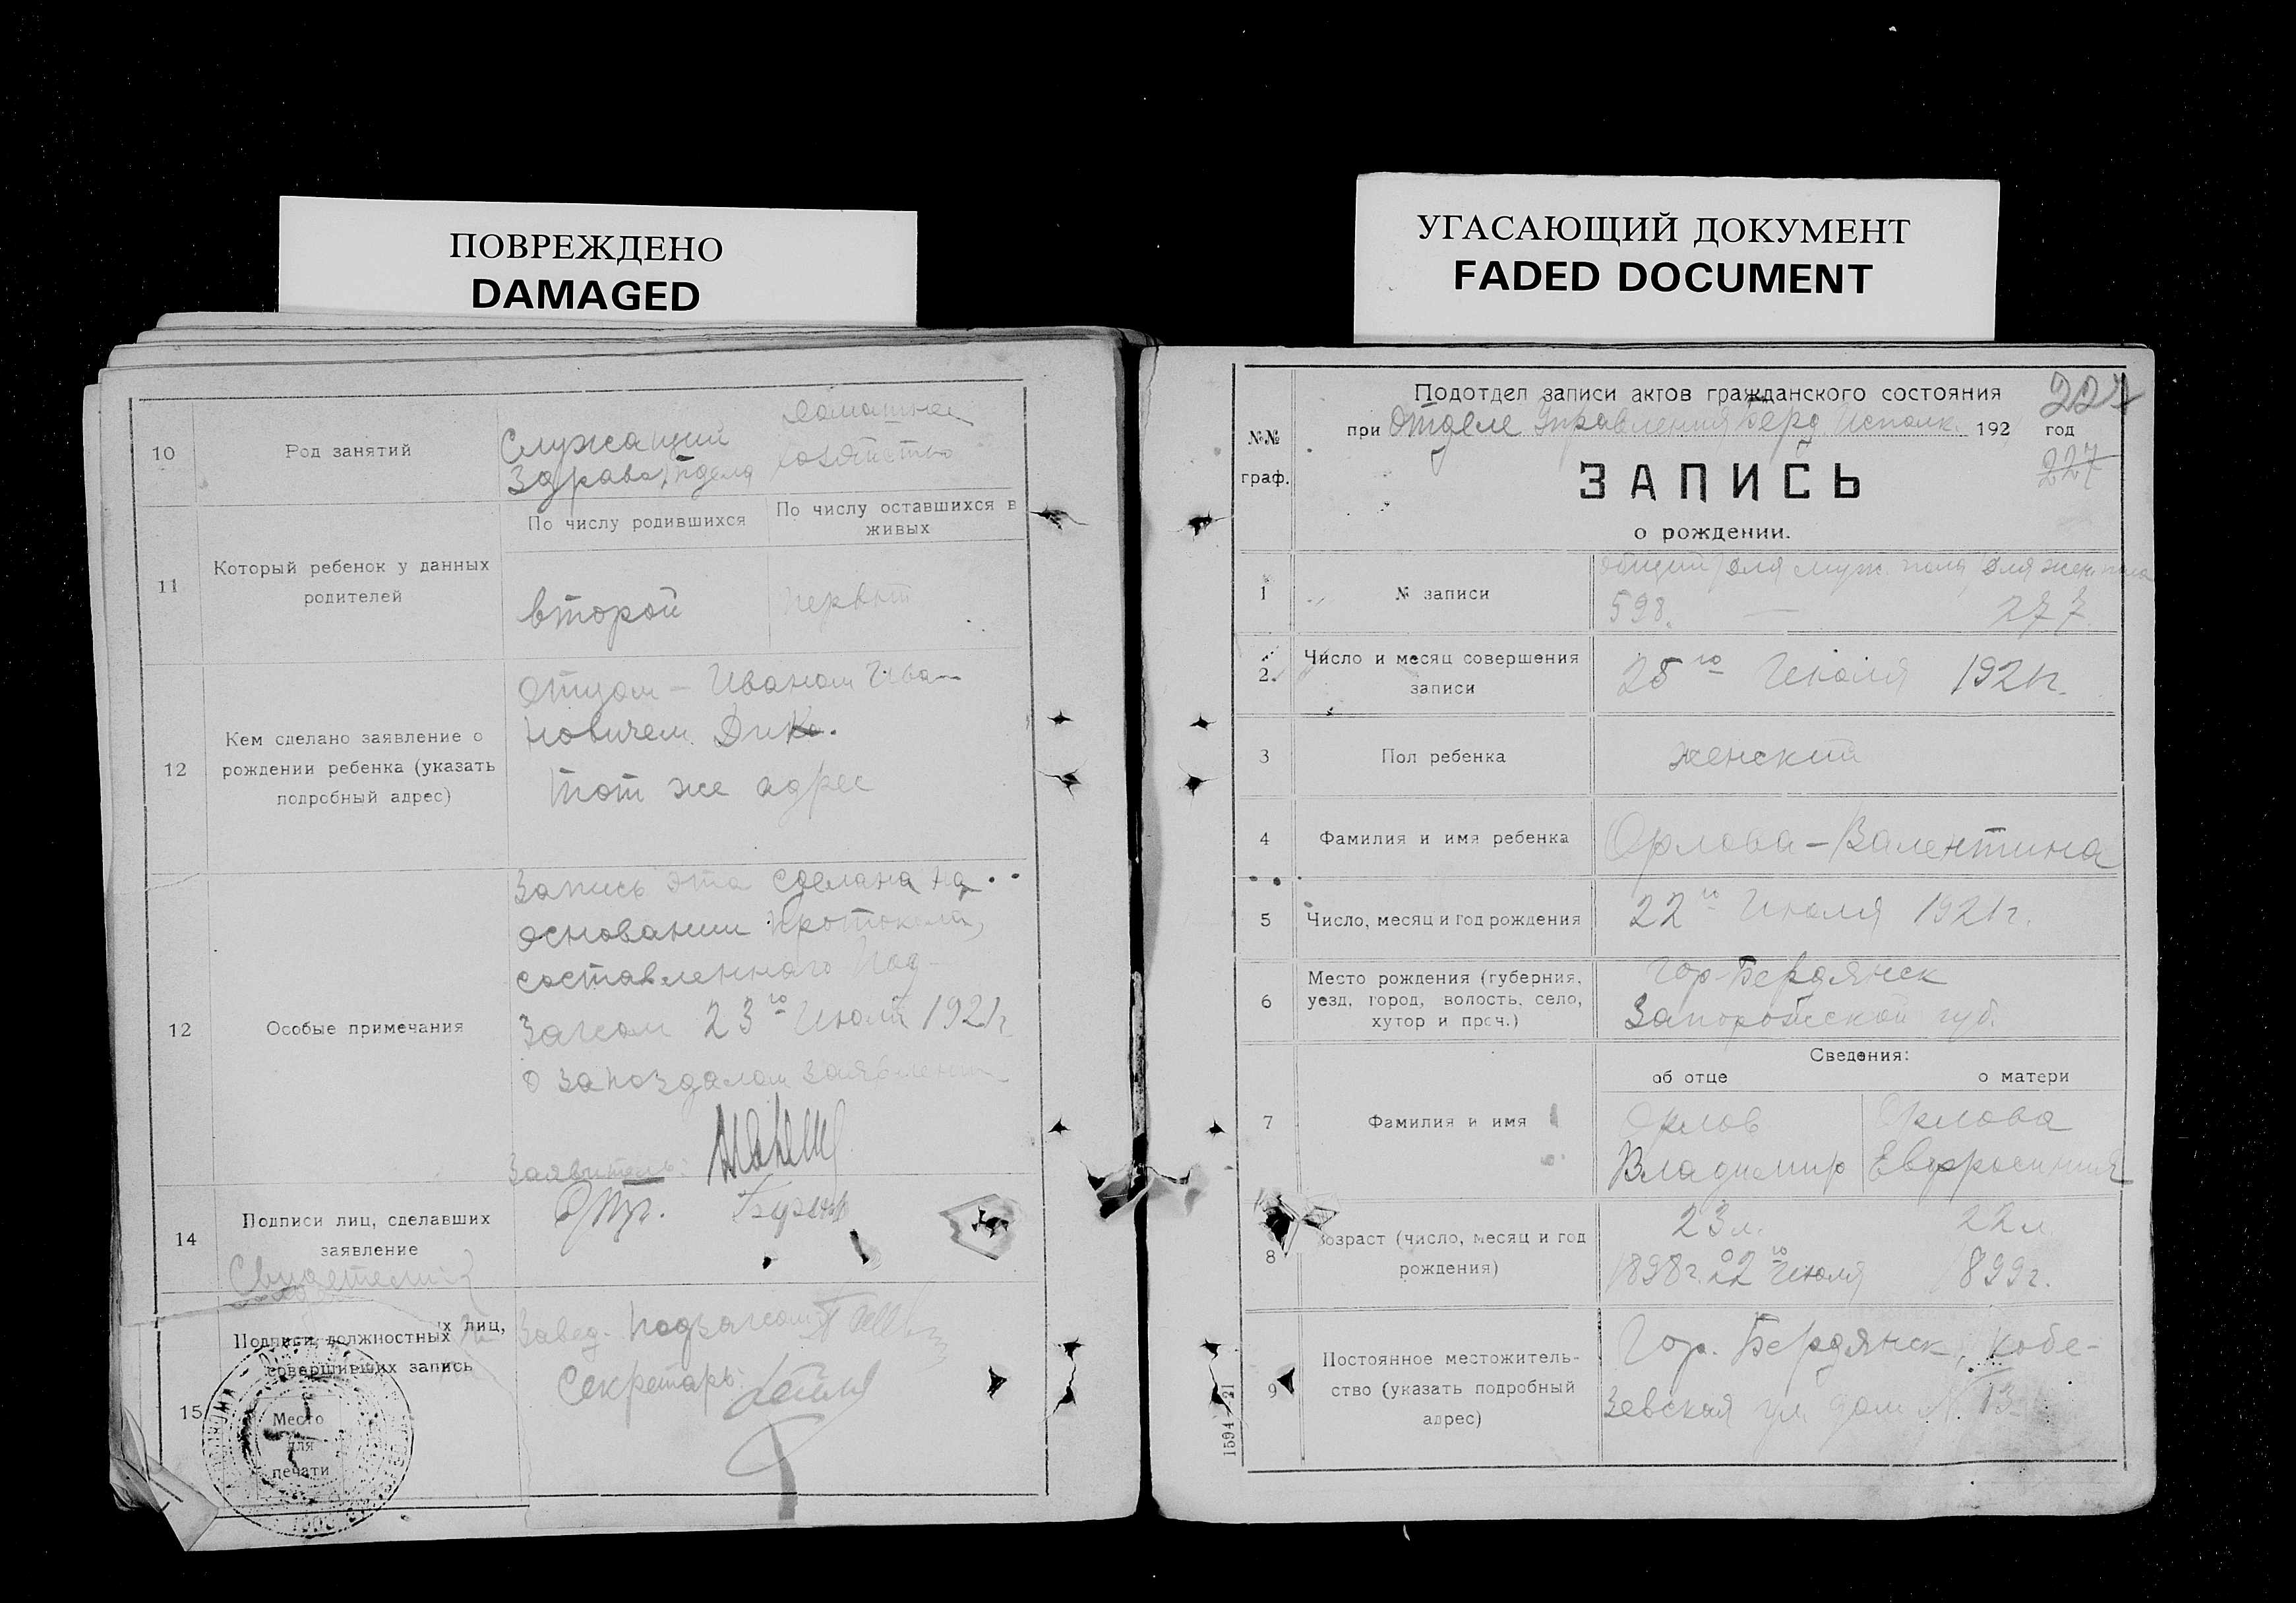 ПОВРЕЖДЕНО
DAMAGED
10
Род занятий
Служащий
Здравотдела
домашнее
хозяйство
11
Который ребенок у данных
родителей
По числу родившихся
По числу оставшихся в
живых
второй
первый
12
Кем сделано заявление о
рождении ребенка (указать
подробный адрес)
Отцом – Иваном Ива-
новичем Дико.
тот же адрес
12
Особые примечания
Запись эта сделана на
основании протокола,
составленного Под-
загсом 23го Июля 1921г
о запоздалом заявлении
Заявитель:
14
Подписи лиц, сделавших
заявление
Свидетели
15
Подписи должностных лиц,
совершивших запись
Завед. Подзагсом
Секретарь
Место
для
печати
УГАСАЮЩИЙ ДОКУМЕНТ
FADED DOCUMENT
227
Подотдел записи актов гражданского состояния
при Отделе Управления Берд. Исполк. 192 год
227
№№
граф.
ЗАПИСЬ
о рождении.
1
№ записи
Общий Для муж. пола Для жен. пола
598. — 277
2.
Число и месяц совершения
записи
25го Июля 1921г.
3
Пол ребенка
женский
4
Фамилия и имя ребенка
Орлова – Валентина
5
Число, месяц и год рождения
22го Июля 1921г.
6
Место рождения (губерния,
уезд, город, волость, село,
хутор и проч.)
гор. Бердянск
Запорожской губ.
Сведения:
об отце
о матери
7
Фамилия и имя
Орлов
Владимир
Орлова
Евфросиния
8
Возраст (число, месяц и год
рождения)
23 л.
1898г. 22го Июля
22 л
1899г.
9
Постоянное местожитель-
ство (указать подробный
адрес)
Гор. Бердянск, Кобе-
зевская ул. дом № 13
1594—21